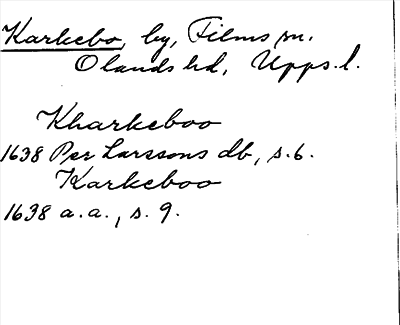 Karkebo, by, Films sn.
Olands hd, Upps. l.
Kharkeboo
1638 Per Larssons db, s. 6.
Karkeboo
1638 a. a., s. 9.